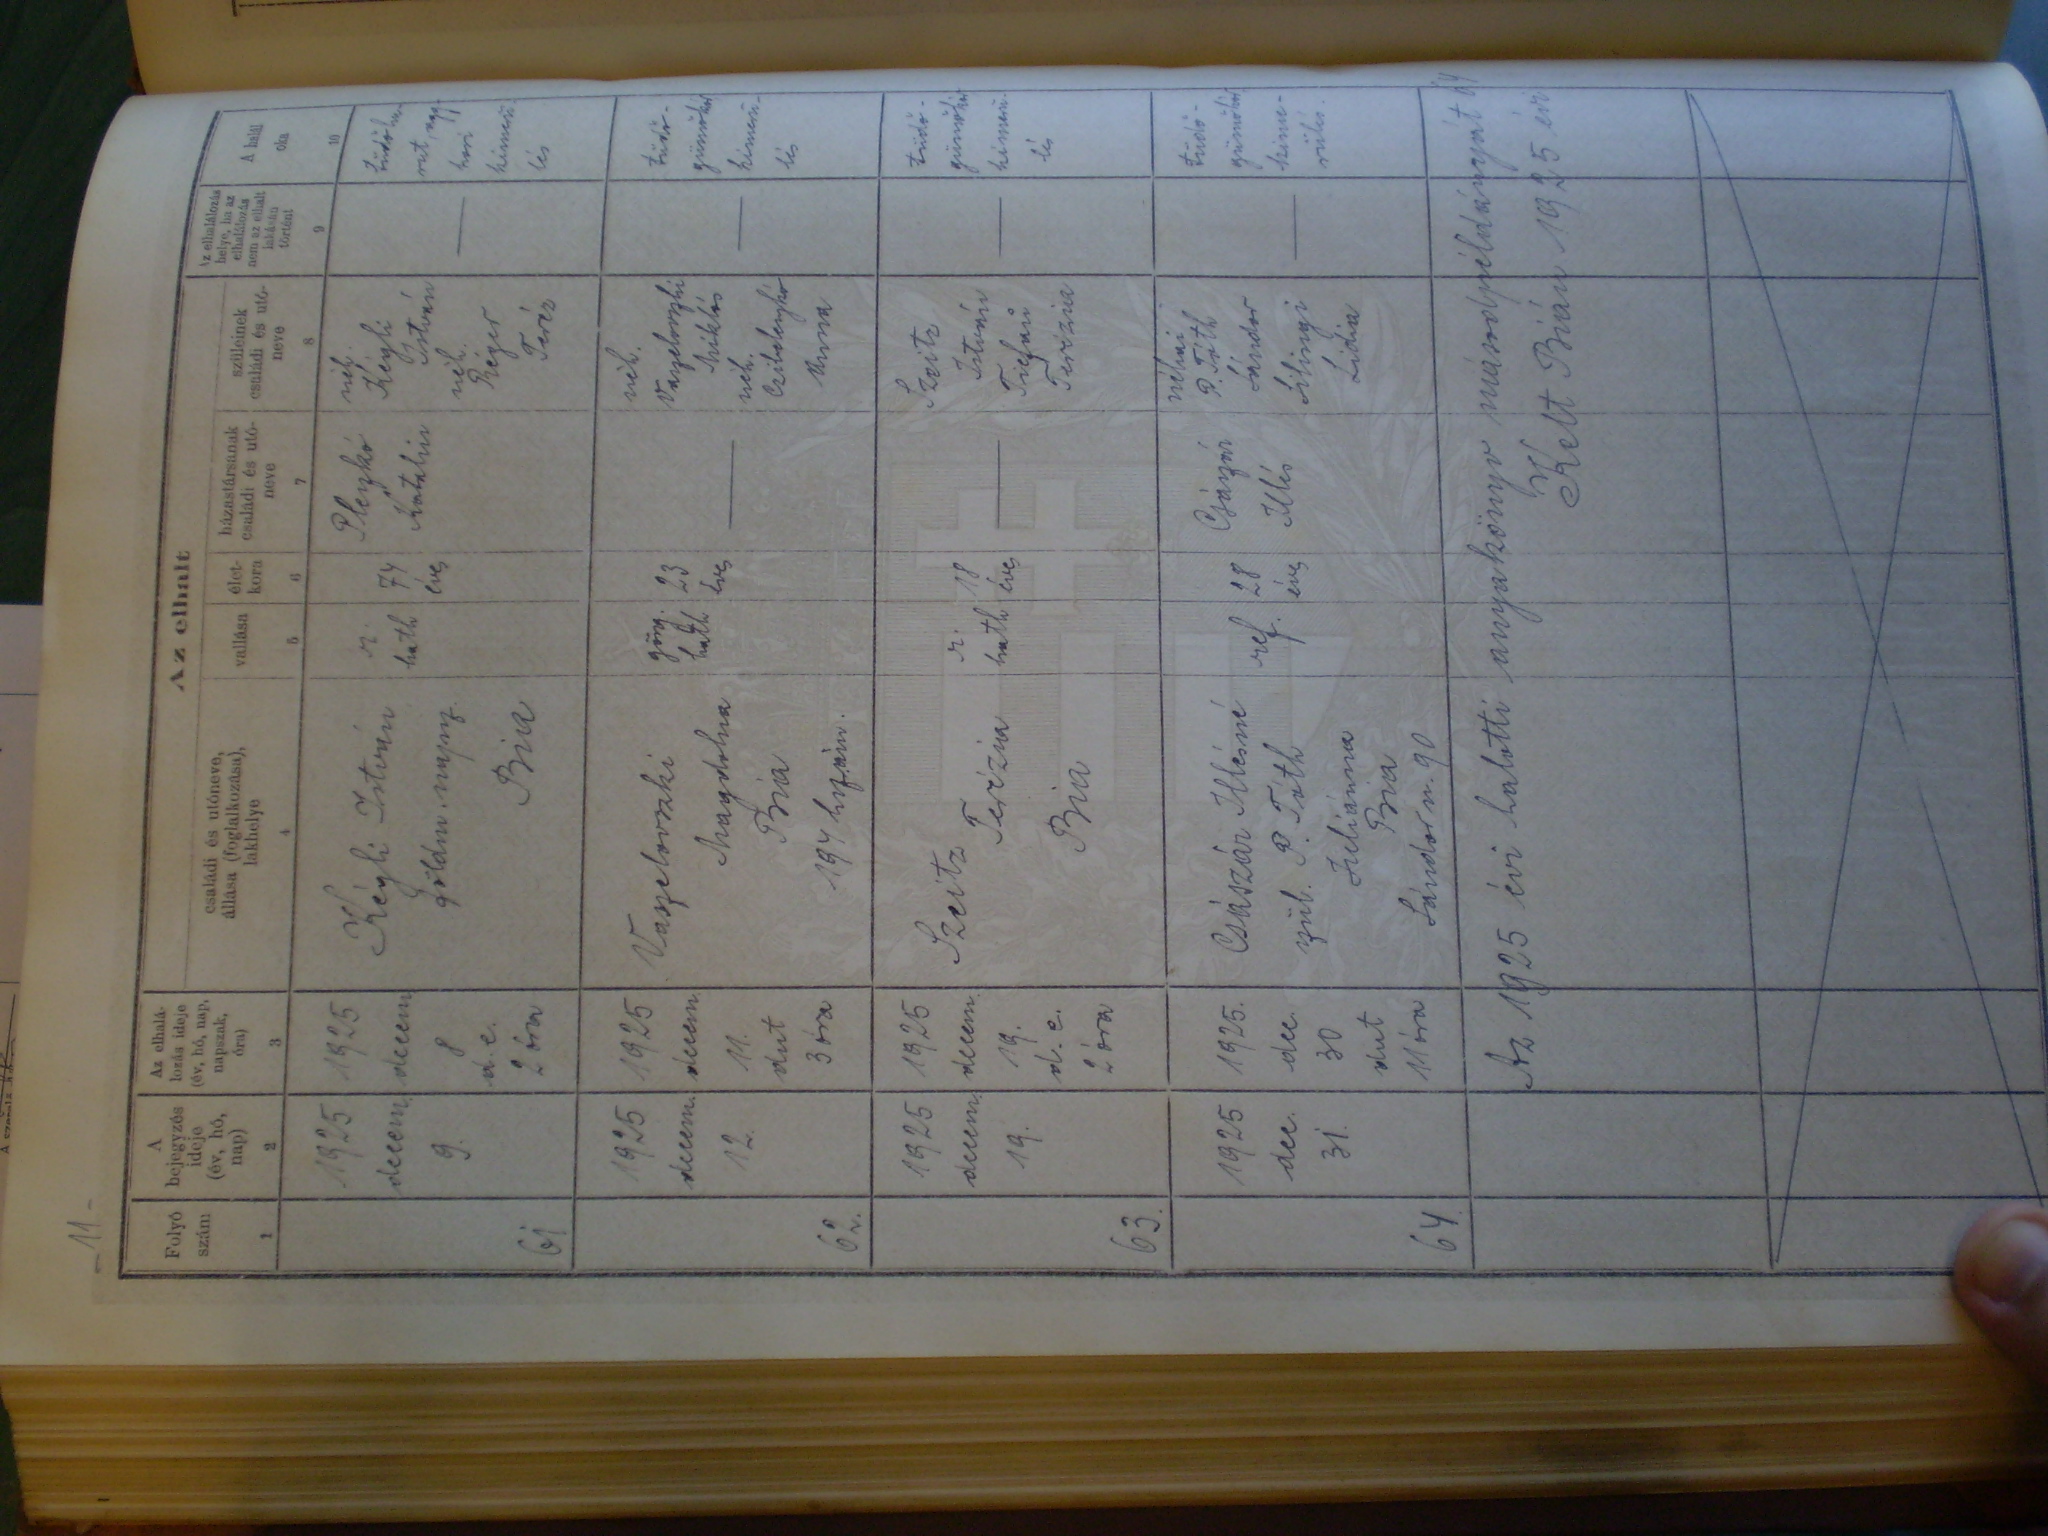 - 11 -
Az elhalt
Folyó
szám
A
bejegyzés
ideje
(év, hó,
nap)
Az elhalá-
lozás ideje
(év, hó, nap,
napszak,
óra)
családi és utóneve,
állása (foglalkozása),
lakhelye
vallása
élet-
kora
házastársának
családi és utó-
neve
szüleinek
családi és utó-
neve
Az elhalálozás
helye, ha az
elhalálozás
nem az elhalt
lakásán
történt
A halál
oka
1
2
3
4
5
6
7
8
9
10
61
1925
decem.
9.
1925
decem
8
d.e.
2 óra
Kégli István
földm. napsz.
Bia
r.
kath
74
éves
Katalin
néh.
Kégli
István
néh.
Réger
Teréz
kimerü-
lés
62.
1925
decem.
12.
1925
decem.
11.
dut
3 óra
Vaszelovszki
Magdolna
Bia
194 hszám.
görög
kath
23
éves
—
néh.
Vaszelovszki
Miklós
néh.
Anna
—
tüdő-
gümőkór
kimerü-
lés
63.
1925
decem.
19.
1925
decem.
19.
d. e.
2 óra
Szeitz
Terézia
Bia
r.
kath
18
éves
—
Szeitz
István
Terézia
—
tüdő-
gümőkór
kimerü-
lés
64.
1925
dec.
31.
1925.
dec.
30
dut
11 óra
Császár Illésné
szül. P. Tóth
Juliánna
Bia
Sándor u. 90
ref.
28
éves
Császár
Illés
néhai
P. Tóth
Sándor
Lidia
—
tüdő-
gümőkór
kime-
rülés.
Az 1925 évi halotti anyakönyv másodpéldányát 64
Kelt Bián 1925 évi